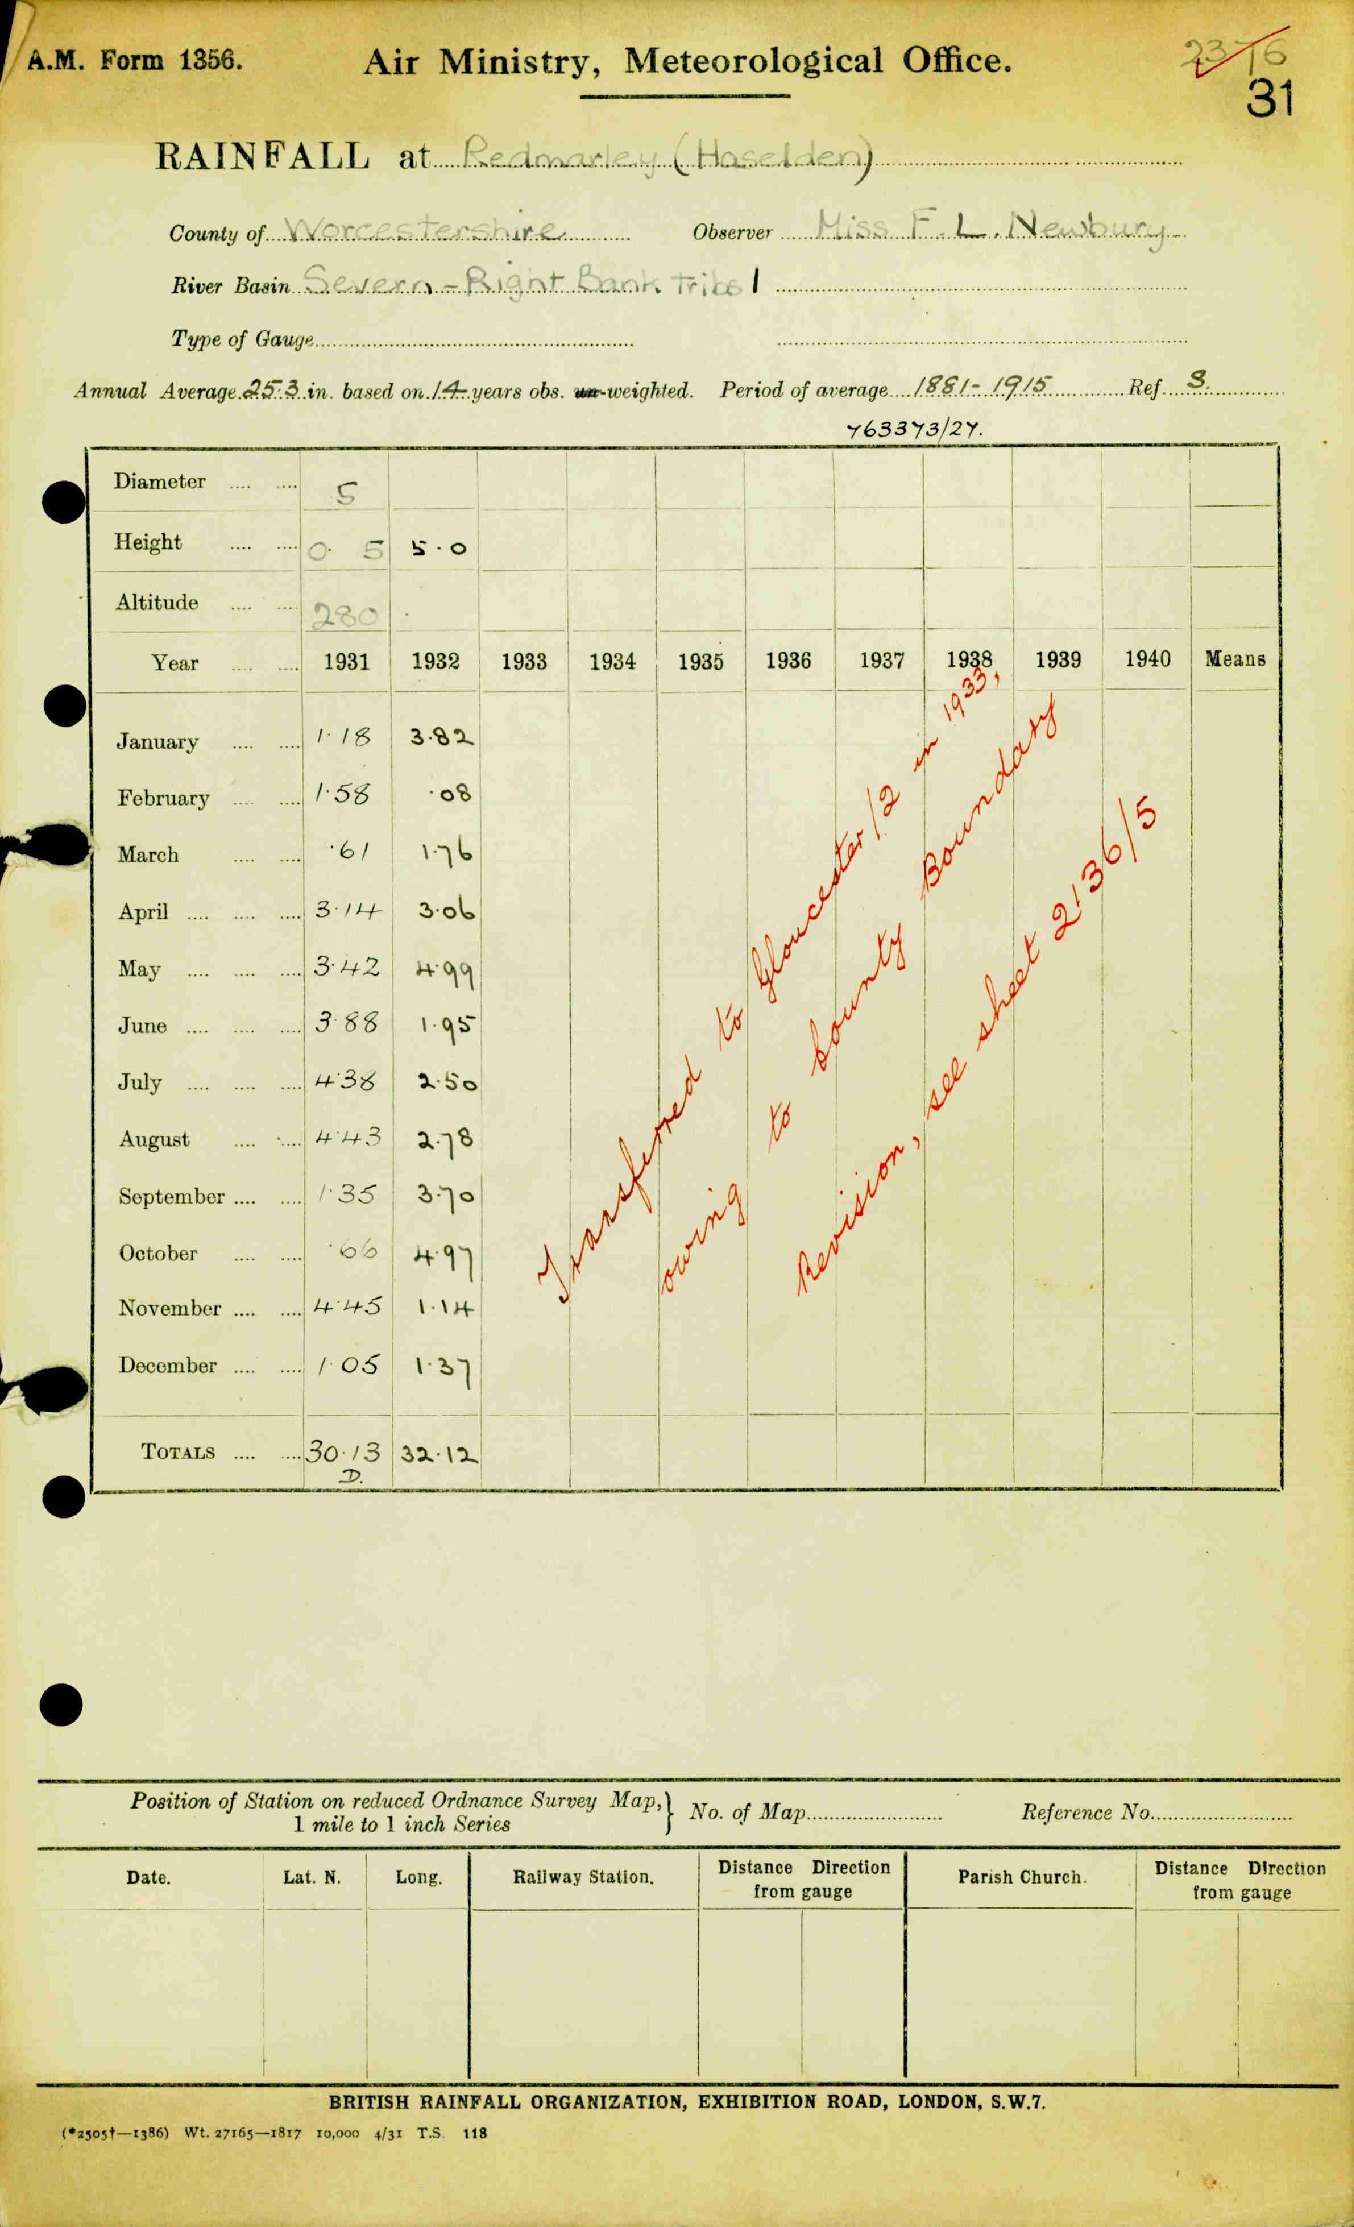 A.M. Form 1356.
Air Ministry, Meteorological Office.
2376
31
RAINFALL at Redmarley (Haselden)
County of Worcestershire Observer Miss F. L. Newbury
River Basin Severn - Right Bank Tribs 1
Type of Gauge
Annual Average 25.3 in. based on 14 years obs. un-weighted. Period of average 1881-1915 Ref. S.
763373/27.
Diameter 5
Height 0 5 5.0
Altitude 280
Year 1931 1932 1933 1934 1935 1936 1937 1938 1939 1940 Means
January 1.18 3.82
February 1.58 .08
March .61 1.76
April 3.14 3.06
May 3.42 4.99
June 3.88 1.95
July 4.38 2.50
August 4.43 2.78
September 1.35 3.70
October .66 4.97
November 4.45 1.14
December 1.05 1.37
TOTALS 30.13 32.12
D.
Transferred to Gloucester/2 in 1933,
owing to County Boundary
Revision, see sheet 2136/5
Position of Station on reduced Ordnance Survey Map,} No. of Map Reference No.
1 mile to 1 inch Series
Date. Lat. N. Long. Railway Station. Distance Direction from gauge Parish Church. Distance Direction from gauge
BRITISH RAINFALL ORGANIZATION, EXHIBITION ROAD, LONDON, S.W.7.
(*2505†—1386) Wt. 27165—1817 10,000 4/31 T.S. 118